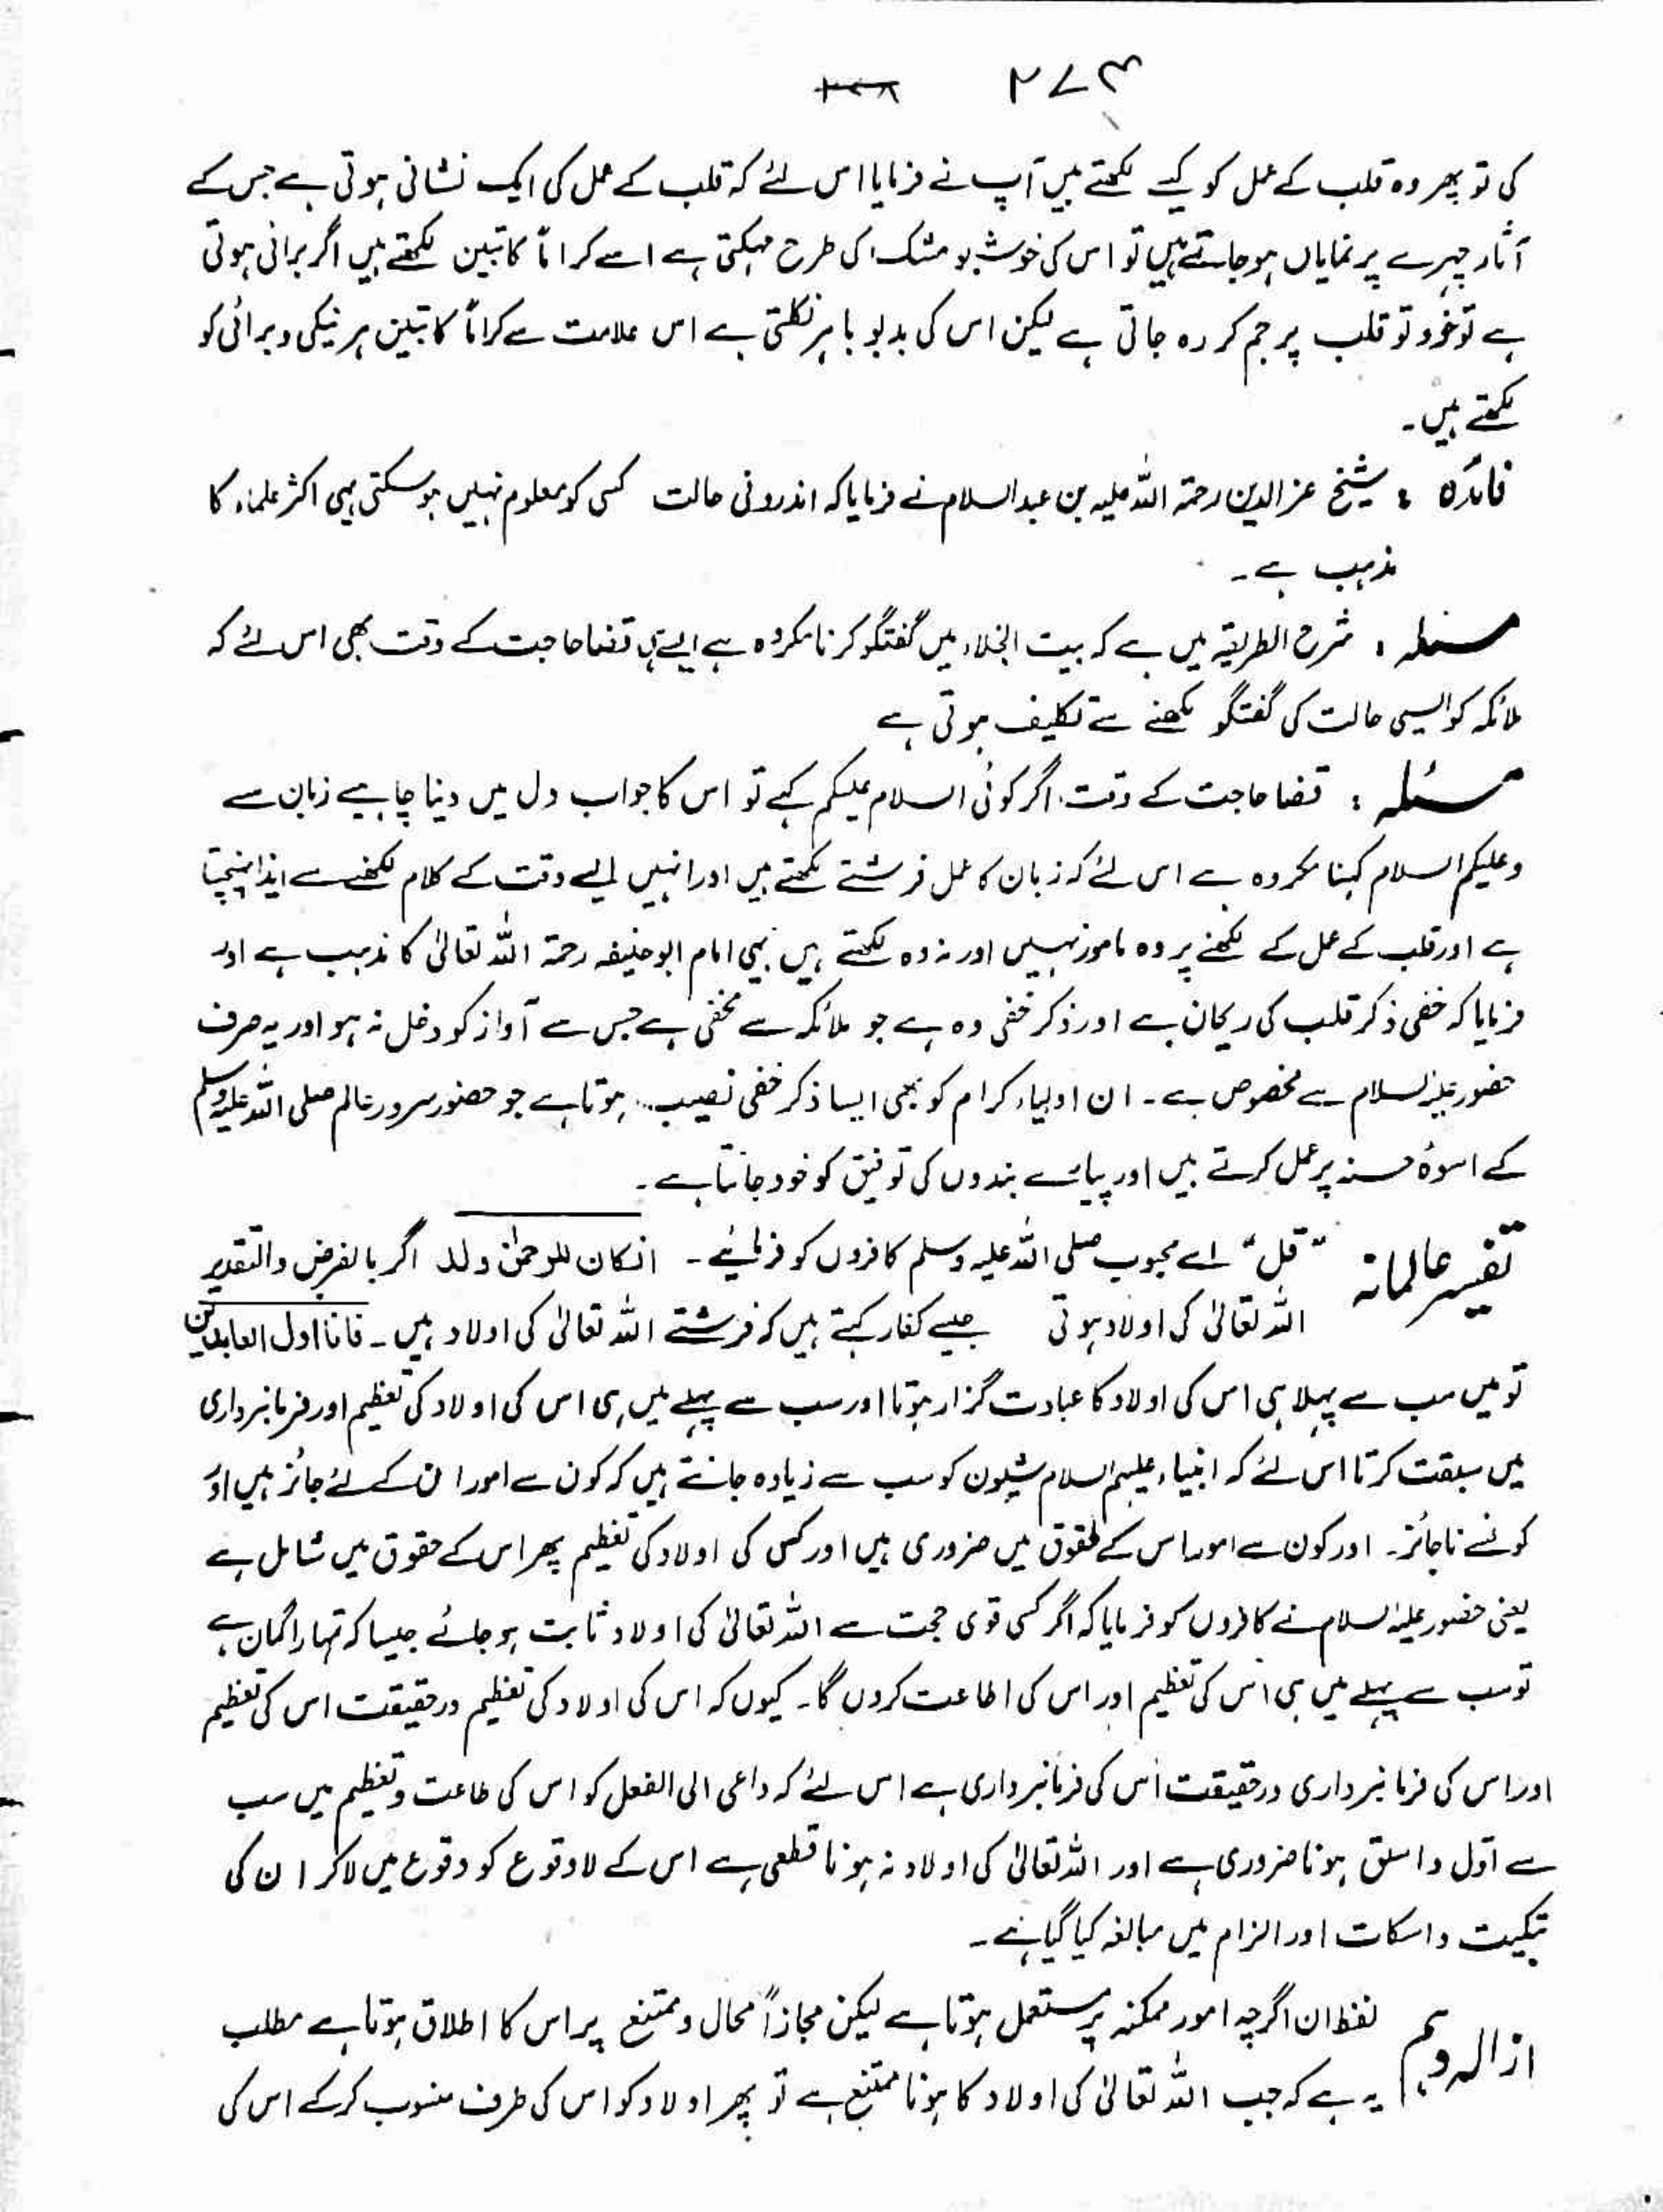 ۲۷۳
کی تو پھر وہ قلب کے عمل کو کیسے لکھتے ہیں آپ نے فرمایا اس لئے کہ قلب کے عمل کی ایک نشانی ہوتی ہے جس کے
آثار چہرے پر نمایاں ہو جاتے ہیں تو اس کی خوشبو مشک کی طرح مہکتی ہے اسے کراماً کاتبین لکھتے ہیں اگر برائی ہوتی
ہے تو خود تو قلب پر جم کر رہ جاتی ہے لیکن اس کی بدبو باہر نکلتی ہے اس علامت سے کراماً کاتبین ہر نیکی و برائی کو
لکھتے ہیں۔
فائدہ : شیخ عزالدین رحمۃ اللہ علیہ بن عبدالسلام نے فرمایا کہ اندرونی حالت کسی کو معلوم نہیں ہو سکتی یہی اکثر علماء کا
مذہب ہے۔
مسئلہ : شرح الطریقہ میں ہے کہ بیت الخلاء میں گفتگو کرنا مکروہ ہے ایسے ہی قضا حاجت کے وقت بھی اس لئے کہ
ملائکہ کو ایسی حالت کی گفتگو لکھنے سے تکلیف ہوتی ہے
مسئلہ : قضا حاجت کے وقت اگر کوئی السلام علیکم کہے تو اس کا جواب دل میں دینا چاہیے زبان سے
وعلیکم السلام کہنا مکروہ ہے اس لئے کہ زبان کا عمل فرشتے لکھتے ہیں اور انہیں ایسے وقت کے کلام لکھنے سے ایذا پہنچتا
ہے اور قلب کے عمل کے لکھنے پر وہ مامور نہیں اور نہ وہ لکھتے ہیں یہی امام ابوحنیفہ رحمۃ اللہ تعالیٰ کا مذہب ہے اور
فرمایا کہ خفی ذکر قلب کی ریحان ہے اور ذکر خفی وہ ہے جو ملائکہ سے مخفی ہے جس سے آواز کو دخل نہ ہو اور یہ صرف
حضور علیہ السلام سے مخصوص ہے۔ ان اولیاء کرام کو بھی ایسا ذکر خفی نصیب ہوتا ہے جو حضور سرور عالم صلی اللہ علیہ وسلم
کے اسوۂ حسنہ پر عمل کرتے ہیں اور پیارے بندوں کی توفیق کو خود جانتا ہے۔
تفسیر عالمانہ "قل" اے محبوب صلی اللہ علیہ وسلم کافروں کو فرمائیے۔ ان کان للرحمٰن ولد اگر بالفرض والتقدیر
اللہ تعالیٰ کی اولاد ہوتی جیسے کفار کہتے ہیں کہ فرشتے اللہ تعالیٰ کی اولاد ہیں۔ فانا اول العابدین
تو میں سب سے پہلا ہی اس کی اولاد کا عبادت گزار ہوتا اور سب سے پہلے میں ہی اس کی اولاد کی تعظیم اور فرمانبرداری
میں سبقت کرتا اس لئے کہ انبیاء علیہم السلام شیئون کو سب سے زیادہ جانتے ہیں کہ کون سے امور ان کے لئے جائز ہیں اور
کونسے ناجائز۔ اور کون سے امور اس کے حقوق میں ضروری ہیں اور کس کی اولاد کی تعظیم پھر اس کے حقوق میں شامل ہے
یعنی حضور علیہ السلام نے کافروں کو فرمایا کہ اگر کسی قوی حجت سے اللہ تعالیٰ کی اولاد ثابت ہو جائے جیسا کہ تمہارا گمان ہے
تو سب سے پہلے میں ہی اس کی تعظیم اور اس کی اطاعت کروں گا۔ کیوں کہ اس کی اولاد کی تعظیم درحقیقت اس کی تعظیم
اور اس کی فرمانبرداری درحقیقت اس کی فرمانبرداری ہے اس لئے کہ داعی الی الفعل کو اس کی طاعت و تعظیم میں سب
سے اوّل و اسبق ہونا ضروری ہے اور اللہ تعالیٰ کی اولاد نہ ہونا قطعی ہے اس کے لاوقوع کو وقوع میں لا کر ان کی
تبکیت و اسکات اور الزام میں مبالغہ کیا گیا ہے۔
ازالہ وہم لفظ ان اگرچہ امور ممکنہ پر مستعمل ہوتا ہے لیکن مجازاً محال و ممتنع پر اس کا اطلاق ہوتا ہے مطلب
یہ ہے کہ جب اللہ تعالیٰ کی اولاد کا ہونا ممتنع ہے تو پھر اولاد کو اس کی طرف منسوب کر کے اس کی